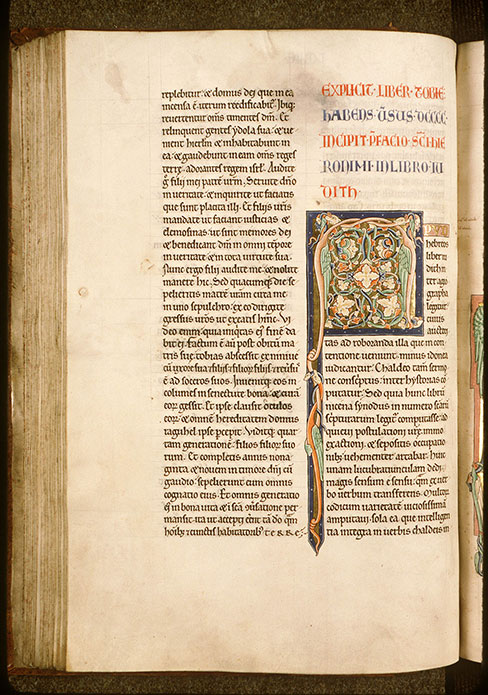 replebitur. & domus dei que in ea
incensa ē iterum reedificabit̄. Ibiq;
reuertentur om̄s timentes dm̄. Et
relinquent gentes ydola sua. & ue
nient hierl̄m & inhabitabunt in
ea. & gaudebunt in ea om̄s reges
terrę. adorantes regem isrl̄. Audite
g̊ filij mei patrē ur̄m. Seruite dn̄o
in ueritate. & inquirite ut faciatis
que sunt placita illi. Et filijs ur̄is
mandate ut faciant iusticias &
elemosinas. ut sint memores dei
& benedicant dm̄ in omni tēpore
in ueritate & in tota uirtute sua.
Nunc ergo filij audite me. & nolite
manere hic. Sed quacumq; die se
pelieritis matrē ur̄am circa me
in uno sepulchro. ex eo dirigite
gressus ur̄os ut exeatis hinc. Vi
deo enim quia iniq̇tas ei᷒ finē da
bit ei. Factum ē aū post obitū ma
tris suę. tobias abscessit ex niniue
cū uxore sua & filijs & filiorꝝ filijs. & reuersus
ē ad soceros suos. Inuenitq; eos in
columes in senectute bona. & curā
eorꝝ gessit. Et ipse clausit oculos
eorꝝ. & omnē hereditatem domus
raguhel ipse pcepit. Viditq; quin
tam generationē. filios filiorꝝ suo
rum. Et completis annis nona
ginta & nouem in timore dn̄i. cū
gaudio sepelierunt eum. Omnis
cognatio eius. & omnis generatio
ei᷒ in bona uita & in scā uersatione per
mansit. ita ut accepti eēnt tā dō quā
hoībȝ & cunctis habitatoribȝ terre.
EXPLICIT · LIBER · TOBIE
HABENS · V̄SUS · DCCCC.
INCIPIT · P̄FACIO · SC̄I HIE
RONIMI · IN LIBRO · IU
DITH ·
APVD
hebreos
liber iu
dith in
ter agio
grapha
legitur.
cuius
auctori
tas ad roboranda illa que in con
tencione ueniunt. minus idonea
iudicantur. Chaldeo tam̄ sermo
ne conscriptus. inter hystorias co
putatur. Sed quia hunc librū
nicena synodus in numero sc̄arū
scripturarum legit᷑ computasse. ad
quieui postulationi ur̄e. immo
exactioni. & sepositis occupatio
nibȝ quibȝ uehementer artabar. hinc
unam lucubratiunculam dedi.
magis sensum e sensu. quā ex uer
bo uerbum transferens. Multorꝝ
codicum uarietatē uiciosissimā
amputaui. sola ea que intelligen
tia integra in uerbis chaldeis in